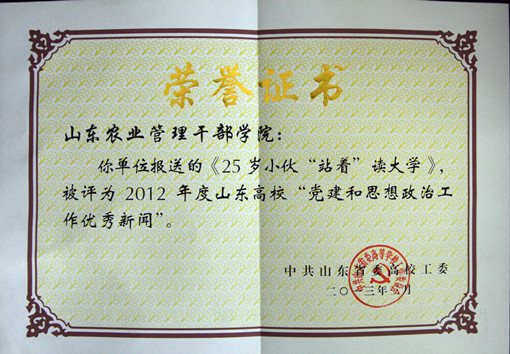 荣誉证书
山东农业管理干部学院：
你单位报送的《25岁小伙“站着”读大学》，
被评为2012年度山东高校“党建和思想政治工
作优秀新闻”。
中共山东省委高校工委
二〇三年月